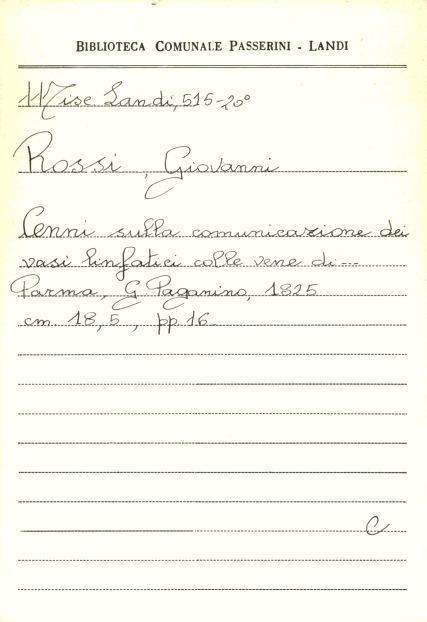 BIBLIOTECA COMUNALE PASSERINI - LANDI
Misc. Landi, 515-20°
Rossi, Giovanni
Cenni sulla comunicazione dei
vasi linfatici colle vene di ---
Parma, G. Paganino, 1825
cm. 18,5, pp. 16.
C